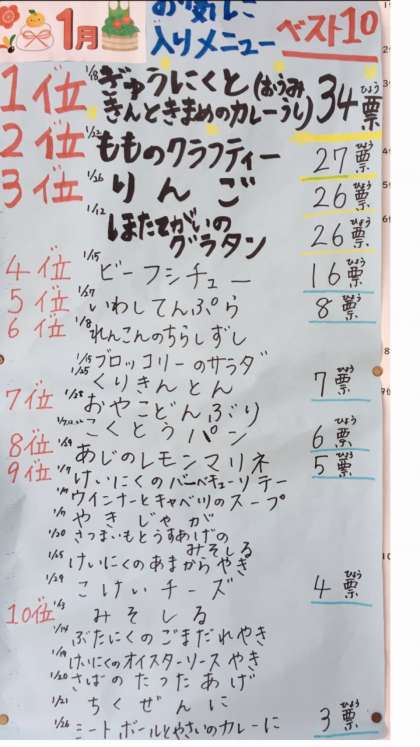 1月
お気に
入りメニュー
ベスト10
1位 1/18 ぎゅうにくと(おうみ
きんときまめのカレーうし) 34票
ひょう
2位 1/22 もものクラフティー 27票
ひょう
3位 1/26 りんご 26票
ひょう
1/12 ほたてがいの
グラタン 26票
ひょう
4位 1/15 ビーフシチュー 16票
ひょう
5位 1/27 いわしてんぷら 8票
ひょう
6位 1/8 れんこんのちらしずし
1/15 1/25 ブロッコリーのサラダ
くりきんとん 7票
ひょう
7位 1/28 おやこどんぶり
こくとうパン 6票
ひょう
8位 1/29 あじのレモンマリネ 5票
ひょう
9位 1/7 けいにくのバーベキューソテー
1/19 ウインナーとキャベツのスープ
1/19 やきじゃが
1/20 さつまいもとうすあげの
みそしる
1/25 けいにくのあまからやき
1/29 こけいチーズ 4票
ひょう
10位 1/13 みそしる
1/14 ぶたにくのごまだれやき
1/19 けいにくのオイスターソースやき
1/20 さばのたったあげ
1/21 ちくぜんに
1/26 ミートボールとやさいのカレーに 3票
ひょう